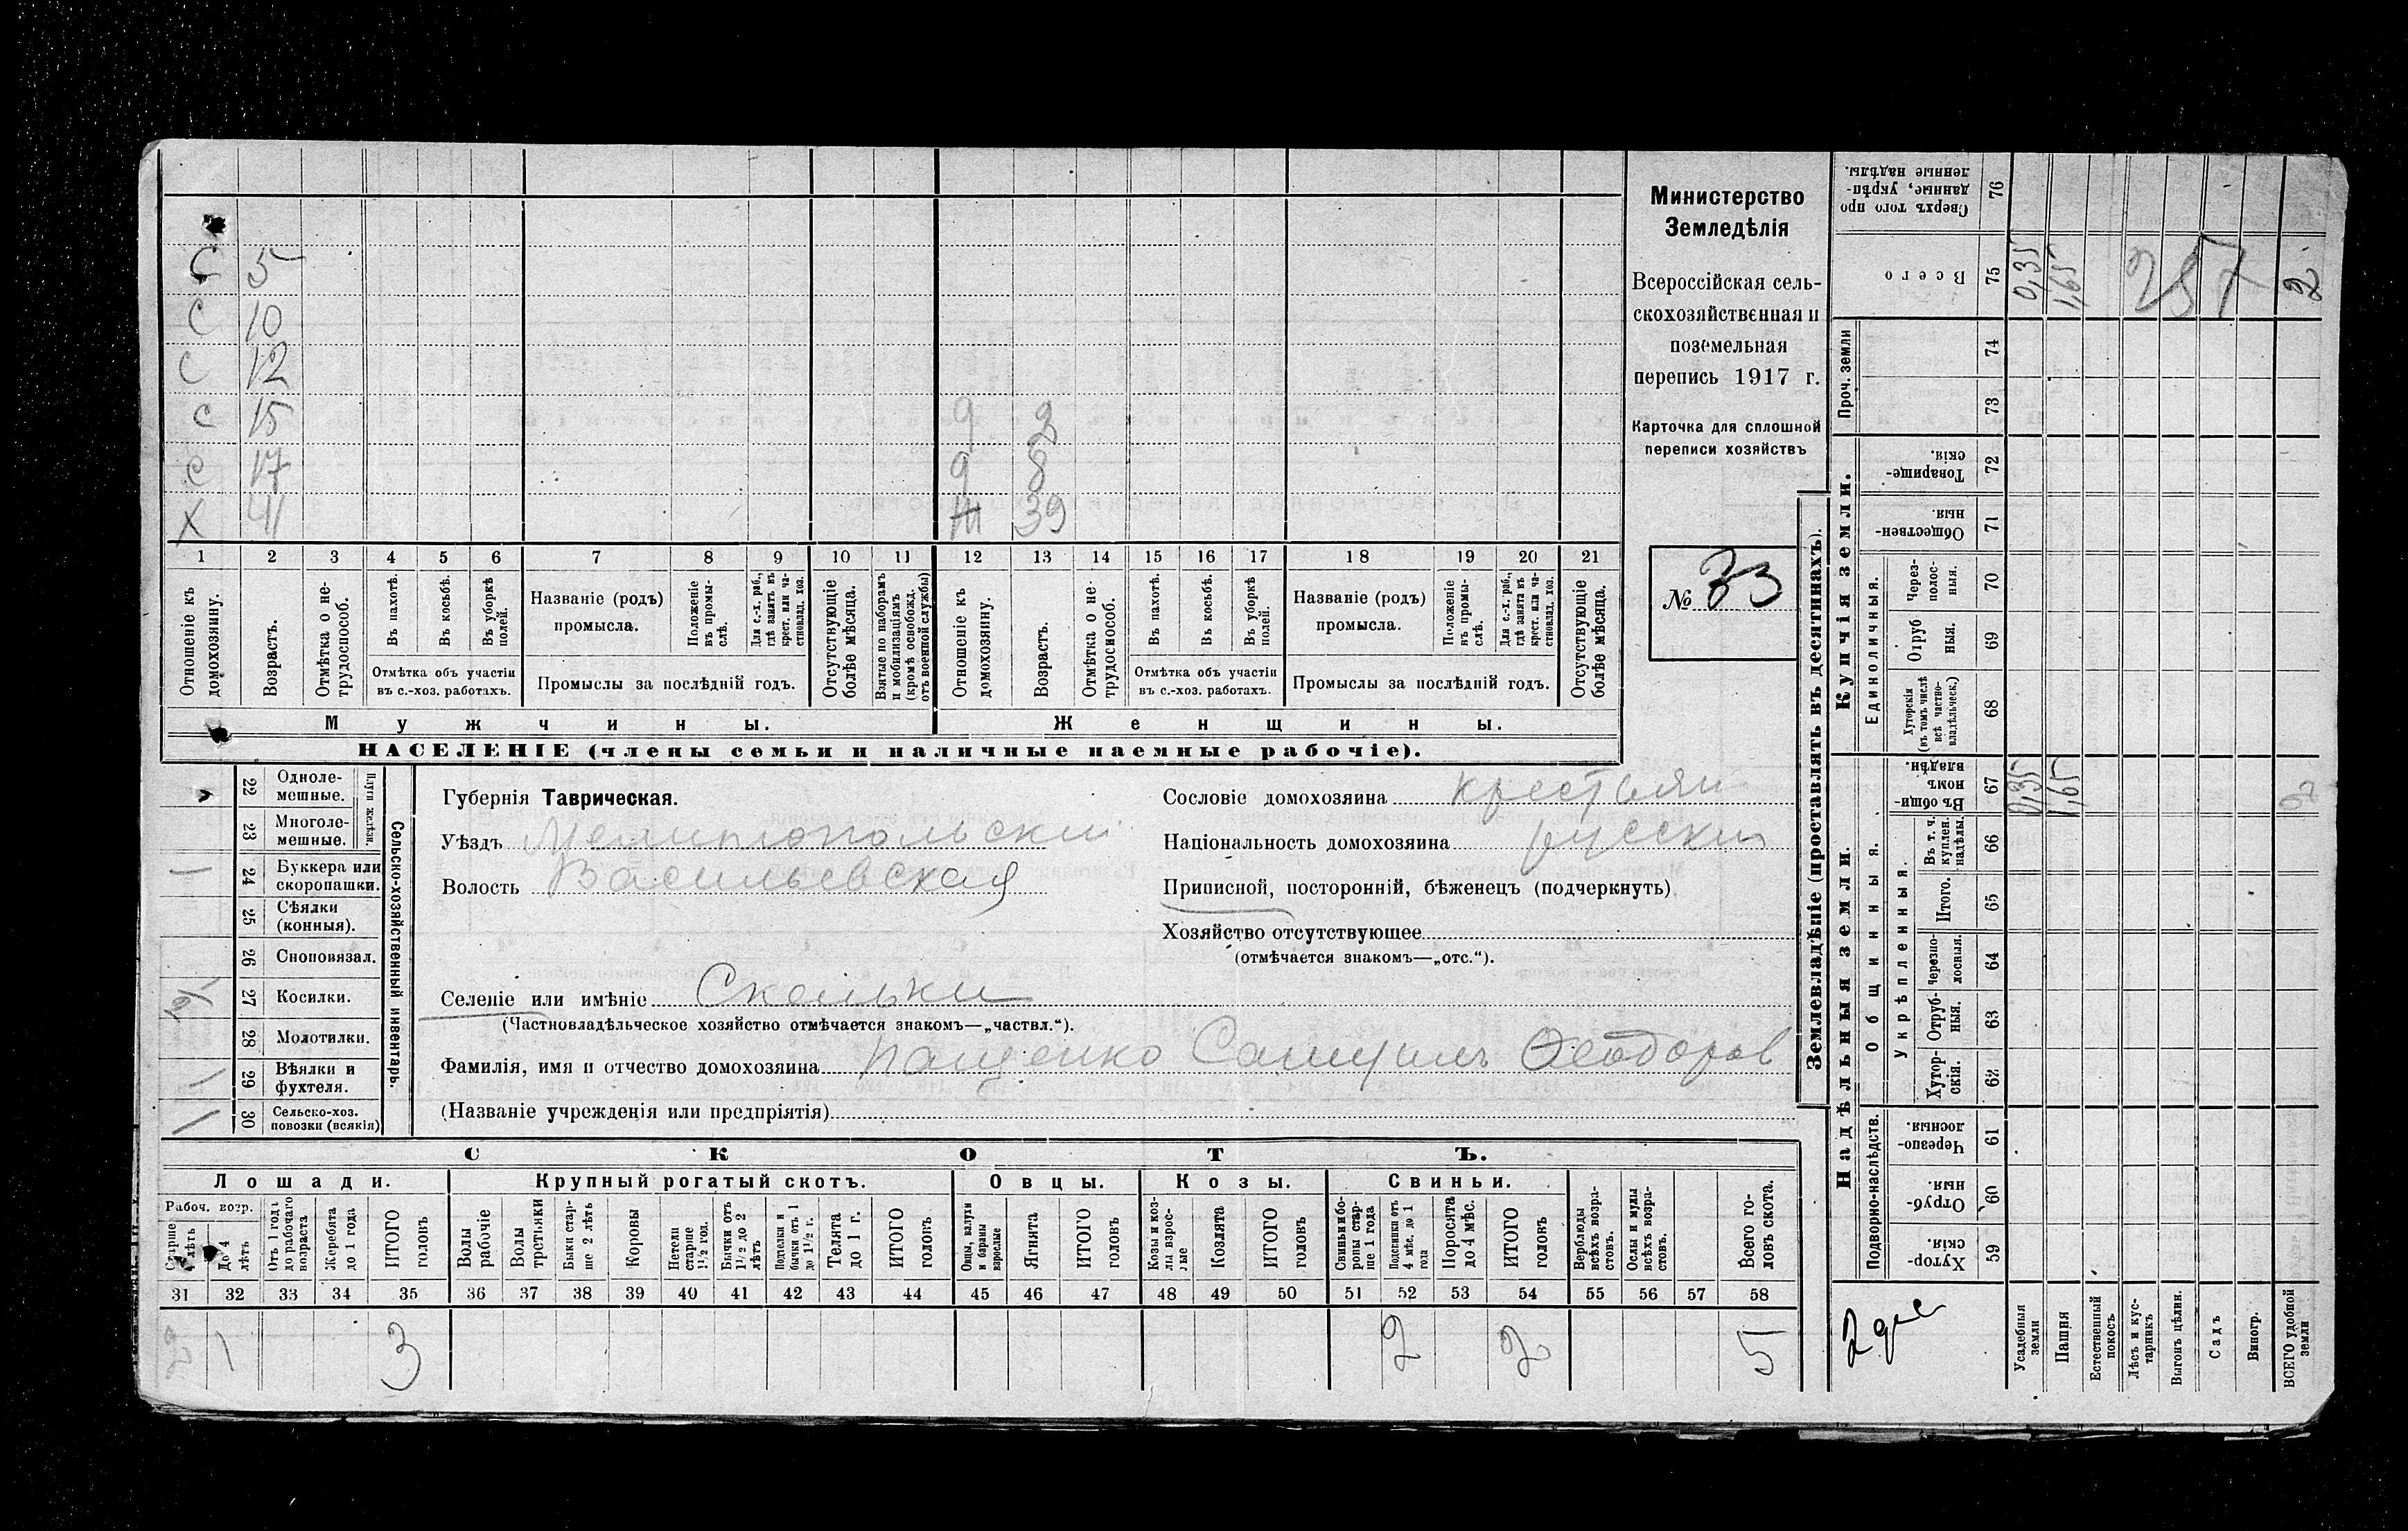 С 5
С 10
С 12
С 15 9 2
С 17 9 8
Х 41 Ж 39
1 2 3 4 5 6 7 8 9 10 11 12 13 14 15 16 17 18 19 20 21
Отношеніе къ домохозяину.
Возрастъ.
Отмѣтка о не-трудоспособ.
Въ пахотѣ.
Въ косьбѣ.
Въ уборкѣ полей.
Отмѣтка объ участіи
въ с.-хоз. работахъ.
Названіе (родъ)
промысла.
Положеніе въ промы-слѣ.
Для с.-х. раб., гдѣ занятъ въ крест. или ча-стновлад. хоз.
Промыслы за послѣдній годъ.
Отсутствующіе болѣе мѣсяца.
Взятые по наборамъ и мобилизаціямъ (кромѣ освобожд. отъ военной службы)
Отношеніе къ домохозяину.
Возрастъ.
Отмѣтка о не-трудоспособ.
Въ пахотѣ.
Въ косьбѣ.
Въ уборкѣ полей.
Отмѣтка объ участіи
въ с.-хоз. работахъ.
Названіе (родъ)
промысла.
Положеніе въ промы-слѣ.
Для с.-х. раб., гдѣ занята въ крест. или ча-стновлад. хоз.
Промыслы за послѣдній годъ.
Отсутствующіе болѣе мѣсяца.
Мужчины. Женщины.
НАСЕЛЕНІЕ (члены семьи и наличные наемные рабочіе).
Министерство
Земледѣлія
Всероссійская сель-
скохозяйственная и
поземельная
перепись 1917 г.
Карточка для сплошной
переписи хозяйствъ
№ 33
Сельско-хозяйственный инвентарь.
Плуги желѣзн.
22 Одноле-
мешные.
23 Многоле-
мешные.
24 Буккера или
скоропашки.
25 Сѣялки
(конныя).
26 Сноповязал.
27 Косилки.
28 Молотилки.
29 Вѣялки и
фухтеля.
30 Сельско-хоз.
повозки (всякія)
Губернія Таврическая.
Уѣздъ Мелитопольскій
Волость Васильевская
Сословіе домохозяина крестьян
Національность домохозяина русскій
Приписной, посторонній, бѣженецъ (подчеркнуть)
Хозяйство отсутствующее
(отмѣчается знакомъ—„отс.“).
Селеніе или имѣніе Скельки
(Частновладѣльческое хозяйство отмѣчается знакомъ—„частвл.“).
Фамилія, имя и отчество домохозяина Пащенко Самуилъ Ѳеодоров
(Названіе учрежденія или предпріятія)
СКОТЪ.
Лошади. Крупный рогатый скотъ. Овцы. Козы. Свиньи.
Рабоч. возр.
Старше 4 лѣтъ
До 4 лѣтъ
Отъ 1 года до рабочаго возраста
Жеребята до 1 года
ИТОГО головъ
Волы рабочіе
Волы третьяки
Быки стар-ше 2 лѣтъ
Коровы
Нетели старше 1½ год.
Бычки отъ 1½ до 2 лѣтъ
Подтелки и бычки отъ 1 до 1½ г.
Телята до 1 г.
ИТОГО головъ
Овцы, валухи и бараны взрослые
Ягнята
ИТОГО головъ
Козы и коз-лы взрос-лые
Козлята
ИТОГО головъ
Свиньи и бо-ровы стар-ше 1 года
Подсвинки отъ 4 мѣс. до 1 года
Поросята до 4 мѣс.
ИТОГО головъ
Верблюды всѣхъ возра-стовъ.
Ослы и мулы всѣхъ возра-стовъ.
Всего го-ловъ скота.
31 32 33 34 35 36 37 38 39 40 41 42 43 44 45 46 47 48 49 50 51 52 53 54 55 56 57 58
2 1 3 2 2 5
Землевладѣніе (проставлять въ десятинахъ).
Надѣльныя земли.
Купчія земли.
Проч. земли
Подворно-наслѣдств.
Общинныя.
Укрѣпленныя.
Единоличныя.
Сверхъ того про
данные, укрѣп-
ленные надѣлы.
76
Всего 75 0,35 1,65 257 2
74
73
Товарище-
скія. 72
Обществен-
ныя. 71
Через-
полос-
ныя. 70
Отруб
ныя. 69
Хуторскія
(въ томъ числѣ
всѣ частно-
владѣльческ.) 68
Въ общи-
номъ
владѣн. 67 0,35 1,65 2
Въ т. ч.
куплен.
надѣлы. 66
Итого. 65
Черезпо-
лосныя. 64
Отруб-
ныя. 63
Хутор-
скія. 62
Черезпо-
лосныя. 61
Отруб-
ныя. 60
Хутор-
скія. 59
2 дес
Усадебныя
земли
Пашня
Естественный
покосъ
Лѣсъ и кус-
тарникъ
Выгонъ цѣлин.
Садъ
Виногр.
ВСЕГО удобной
земли